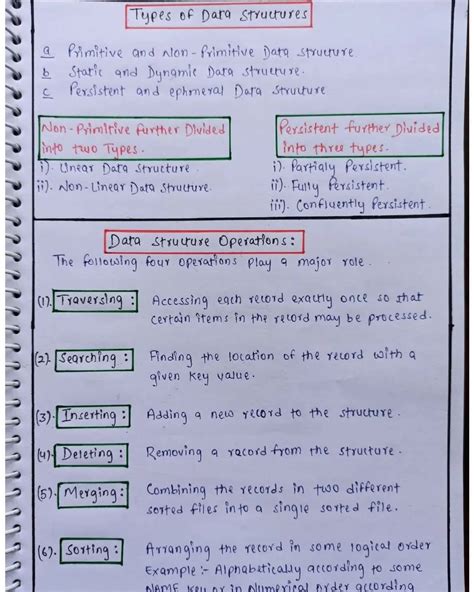 Types of Data Structures
a Primitive and Non-Primitive Data structure.
b Static and Dynamic Data structures.
c Persistent and ephmeral Data structure
Non-Primitive further Divided
into two Types.
i). Linear Data Structure.
ii). Non-Linear Data structure.
Persistent further Divided
into three types.
i). Partialy Persistent.
ii). Fully Persistent.
iii). Confluently Persistent.
Data structure Operations:
The following four operations play a major role.
(1). Traversing: Accessing each record exactly once so that
certain items in the record may be processed.
(2). Searching: Finding the location of the record with a
given key value.
(3). Inserting: Adding a new record to the structure.
(4). Deleting: Removing a racord from the structure.
(5). Merging: Combining the records in two different
sorted files into a single sorted file.
(6). Sorting: Arranging the record in some logical order
Example:- Alphabatically according to some
NAME key or in Numerical order according